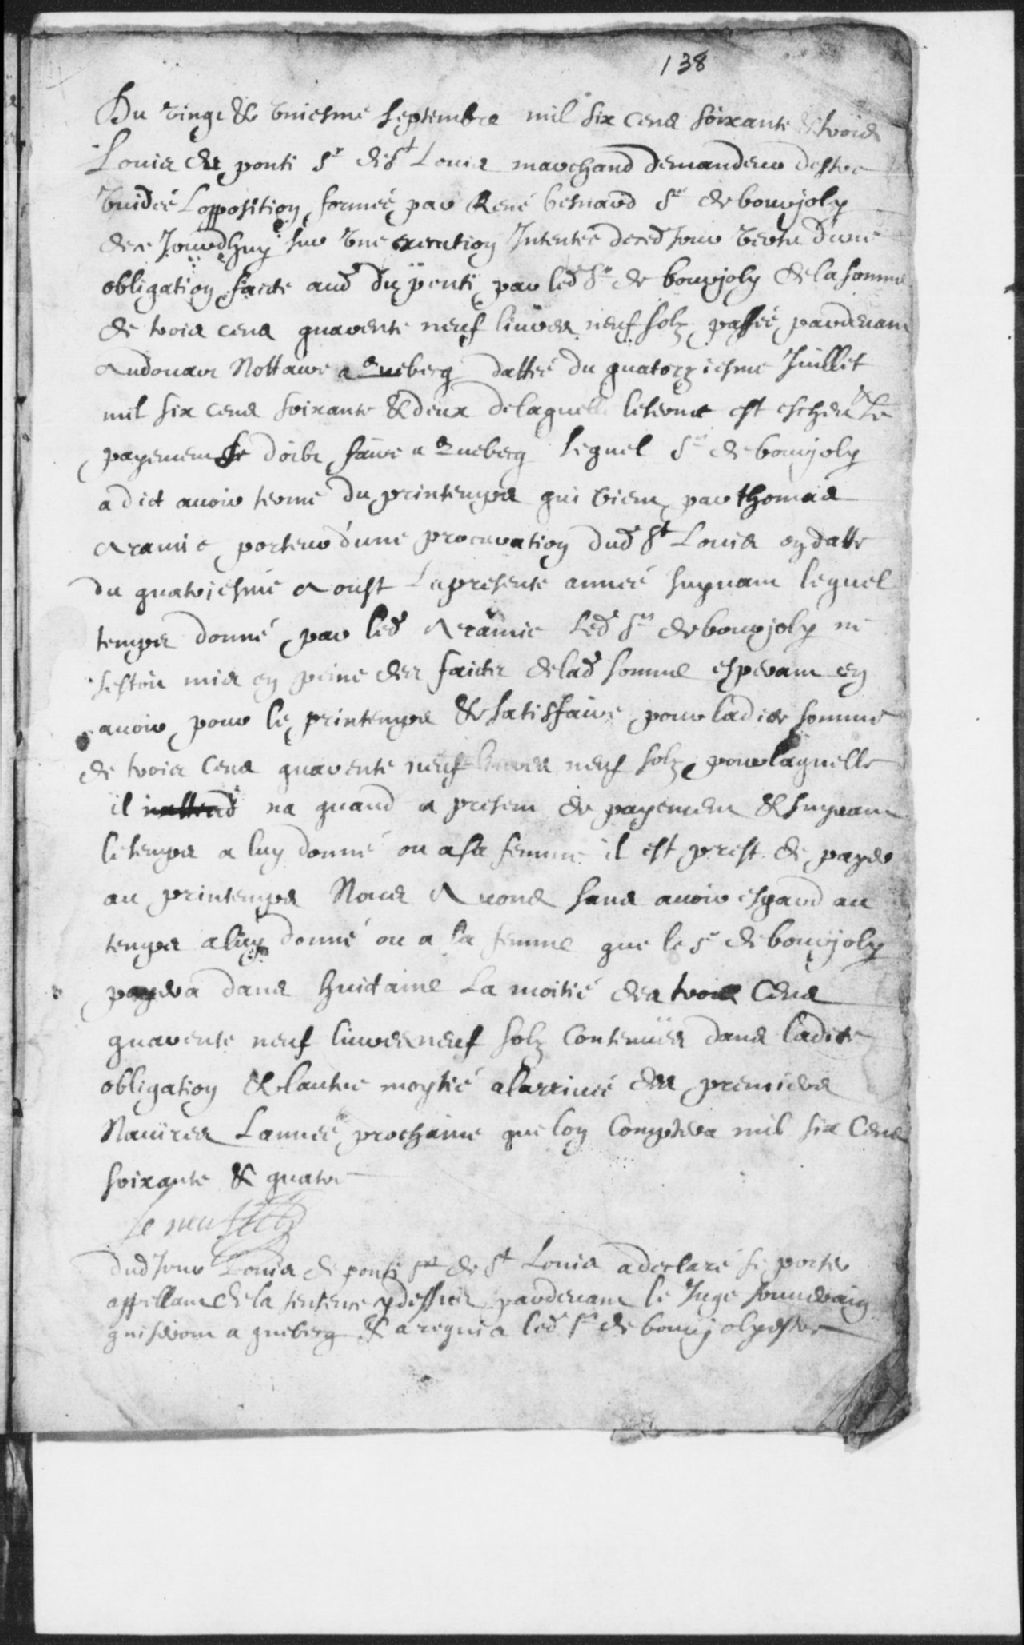 138
Du vingt & vniesme septembre mil six cens soixante & trois
Louis du ponti Sr dist Louis marchand demandeur destre
vuideé Lopposition formeé par René besnard Sr de bourjoly
de ce Jourdhuy sur vne execution Intenteé deced Jour vertu d'une
obligation faicte aud du ponti par led Sr de bourjoly de la somme
de trois cens quarente neuf liures neuf solz passeé pardeuant
Audouart Nottaire a Quebecq datteé du quatorziesme Juillet
mil six cens soixante & deux delaquelle leterme est escheu Le
payement se doibt faire a Quebecq lequel Sr de bourjoly
a dict auoir terme du printemps qui vient par thomas
Aramie porteur d'une procuration dud St Louis en datte
du quatriesme Aoust Lapresente anneé suyuant lequel
temps donné par led Aramie led Sr de bourjoly ne
sestoit mis en peine des faicts delad somme esperant en
auoir pour le printemps & satisfaire pour ladicte somme
de trois cens quarente neuf liures neuf solz pour laquelle
il na quand a present de payement & suyuant
letemps a luy donné ou asa femme il est prest de payer
au printemps Nous Auons sans auoir esgard au
temps aluy donné ou a sa femme que le Sr de bourjoly
payera dans huictaine La moitié des trois Cens
quarente neuf liures neuf solz contenües dans ladicte
obligation & lautre moytié alarriueé des premiers
Nauires Lanneé prochaine que lon Comptera mil six Cens
soixante & quatre
Le neuf
dud Jour Louis de ponti Sr de St Louis a declaré se porter
appellant de la sentence cy dessus pardeuant le Juge souuerain
quiseront a quebecq & a requis led Sr de bourjoly destre